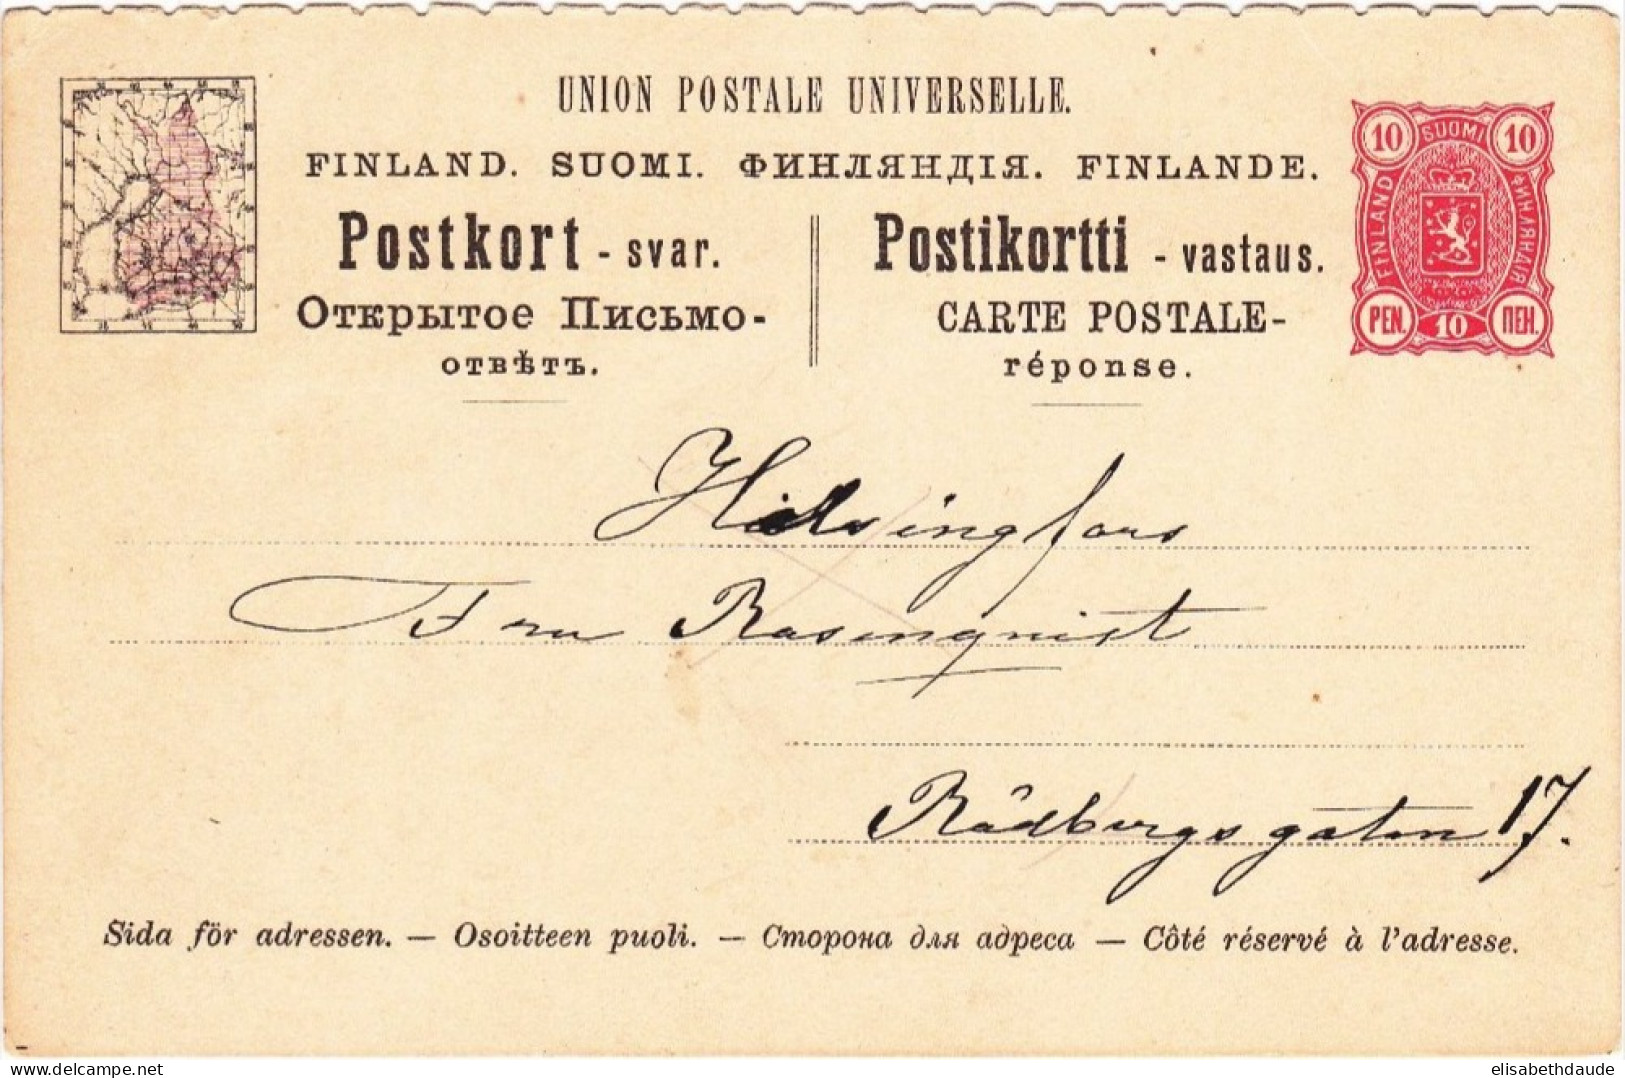 UNION POSTALE UNIVERSELLE.
FINLAND. SUOMI. ФИНЛЯНДІЯ. FINLANDE.
Postkort - svar.
Открытое Письмо-
отвѣтъ.
Postikortti - vastaus.
CARTE POSTALE-
réponse.
10 SUOMI 10
FINLAND ФИНЛЯНДІЯ
PEN. 10 ПЕН.
Helsingfors
Fru Rosenqvist
Rådbergsgatan 17.
Sida för adressen. — Osoitteen puoli. — Сторона для адреса — Côté réservé à l'adresse.
elisabethdaude